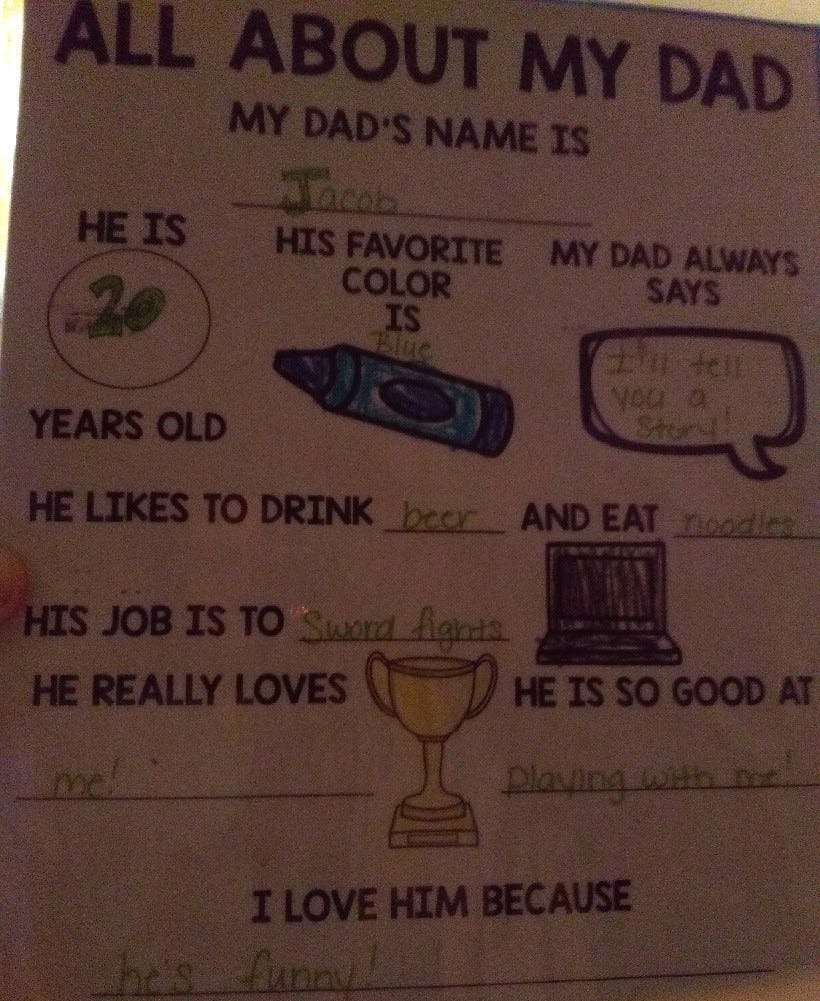 ALL ABOUT MY DAD
MY DAD'S NAME IS
Jacob
HE IS
20
YEARS OLD
HIS FAVORITE
COLOR
IS
Blue
MY DAD ALWAYS
SAYS
I'll tell
you a
story!
HE LIKES TO DRINK beer AND EAT noodles
HIS JOB IS TO Sword fights
HE REALLY LOVES
me!
HE IS SO GOOD AT
playing with me!
I LOVE HIM BECAUSE
he's funny!